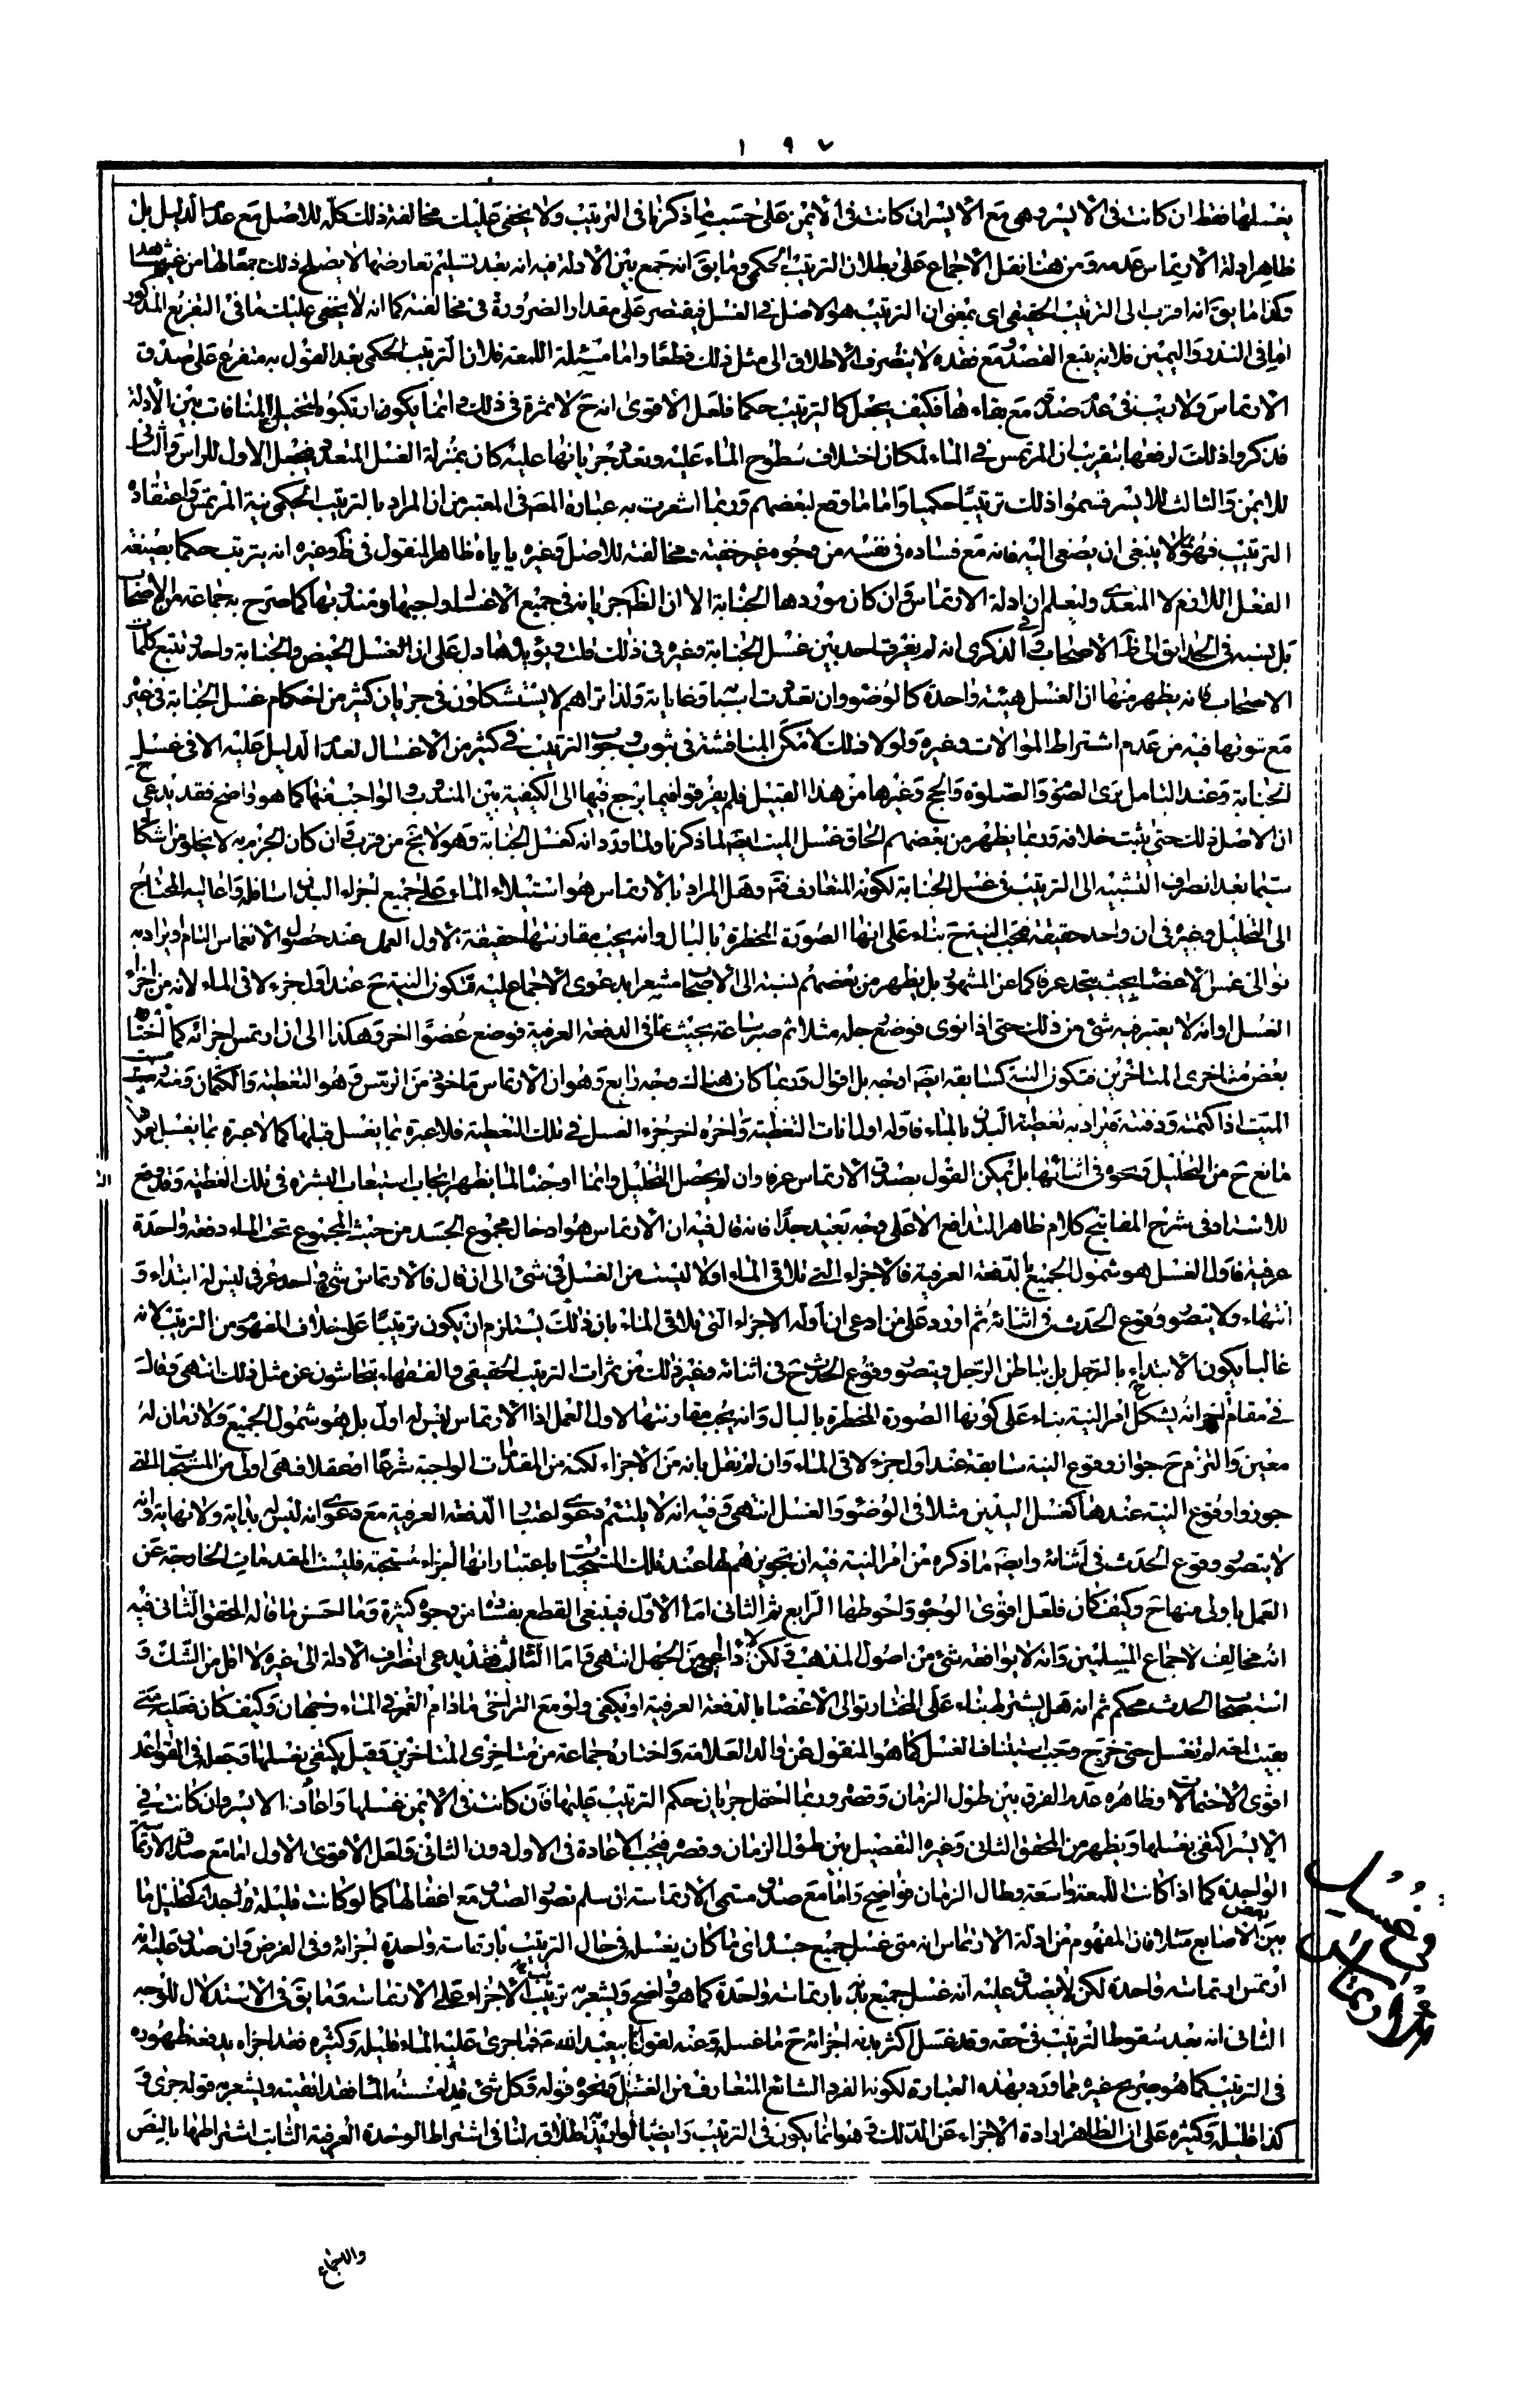 ١٩٧
يغسلها فقط ان كانت فى الايسر وهى مع الايسر ان كانت فى الايمن على حسب ما ذكرنا فى الترتيب ولا يخفى عليك مخالفة ذلك كله للاصل مع عدم الدليل بل
ظاهر ادلة الارتماس عدمه ومن هنا نقل الاجماع على بطلان الترتيب الحكمى وما يق انه جمع بين الادلة فيه انه بعد تسليم تعارضها لا يصلح ذلك جمعا لها من غير شاهد
وكذا ما يق انه اقرب الى الترتيب الحقيقى اى بمعنى ان الترتيب هو الاصل فى الغسل فيقتصر على مقدار الضرورة فى مخالفته كما انه لا يخفى عليك ما فى التفريع المذكور
اما فى النذر واليمين فلانه يتبع القصد ومع فقده لا ينصرف الاطلاق الى مثل ذلك قطعا واما مسئلة اللمعة فلان الترتيب الحكمى بعد القول به متفرع على صدق
الارتماس ولا ريب فى عدم صدقه مع بقاءها فكيف يجعل كالترتيب حكما فلعل الاقوى انه ح لا ثمرة فى ذلك انما يكون ارتكبوه لتخيل المنافات بين الادلة
فذكروا ذلك لرفعها بتقريب ان المرتمس فى الماء لمكان اختلاف سطوح الماء عليه وتعدد جريانها عليه كان بمنزلة الغسل المتعدد فيجعل الاول للراس والثانى
للايمن والثالث للايسر فسموا ذلك ترتيبا حكميا واما ما وقع لبعضهم وربما اشعرت به عبارة المص فى المعتبر من ان المراد بالترتيب الحكمى نية المرتمس واعتقاده
الترتيب فهو مما لا ينبغى ان يصغى اليه فانه مع فساده فى نفسه من وجوه غير خفية ومخالفته للاصل وغيره ياباه ظاهر المنقول فى ظ وغيره انه يترتب حكما بصيغة
الفعل اللازم لا المتعدى وليعلم ان ادلة الارتماس وان كان موردها الجنابة الا ان الظ جريانه فى جميع الاغسال واجبها ومندوبها كما صرح به جماعة من الاصحاب
بل نسبه فى الحدايق الى ظ الاصحاب وفى الذكرى انه لم يفرق احد بين غسل الجنابة وغيره فى ذلك قلت ويؤيده ما دل على ان الغسل الحيض والجنابة واحد وتتبع كلمات
الاصحاب فانه يظهر منها ان الغسل هيئة واحدة كالوضوء وان تعددت اسبابه وغاياته ولذا تراهم لا يستشكلون فى جريان كثير من احكام غسل الجنابة فى غيره
مع ثبوتها فيه من عدم اشتراط الموالات وغيره ولولا ذلك لامكن المناقشة فى ثبوت وجوب الترتيب فى كثير من الاغسال لعدم الدليل عليه الا فى غسل
الجنابة وعند التامل ترى الصوم والصلوة والحج وغيرها من هذا القبيل فلم يفرقوا فيما يرجع فيها الى الكيفية بين المندوب والواجب منها كما هو واضح فقد يدعى ح
ان الاصل ذلك حتى يثبت خلافه وربما يظهر من بعضهم الحاق غسل الميت ايضا لما ذكرنا ولما ورد انه كغسل الجنابة وهو لا يخ من قرب وان كان الجزم به لا يخلو من اشكال
سيما بعد انصراف التشبيه الى الترتيب فى غسل الجنابة لكونه المتعارف فتم وهل المراد بالارتماس هو استيلاء الماء على جميع اجزاء البدن اسافله واعاليه المحتاج
الى التخليل وغيره فى ان واحد حقيقة فتجب النية ح بناء على انها الصورة المخطرة بالبال وانه يجب مقارنتها حقيقة لاول العمل عند حصول الانغماس التام او يراد به
توالى غسل الاعضاء بحيث يتحد عرفا كما عن المشهور بل يظهر من بعضهم نسبته الى الاصحاب مشعرا بدعوى الاجماع عليه فتكون النية ح عند اول جزء لاقى الماء لانه من اجزاء
الغسل او انه لا يعتبر فيه شئ من ذلك حتى اذا نوى فوضع رجله مثلا ثم صبر ساعة بحيث نافى الدفعة العرفية فوضع عضوا اخر وهكذا الى ان ارتمس اجزائه كما اختاره
بعض متاخرى المتاخرين فتكون النية كسابقه ايضا اوجه بل اقوال وربما كان هناك وجه رابع وهو ان الارتماس ماخوذ من الرمس وهو التغطية والكتمان ومنه رمست
الميت اذا كتمته ودفنته فيراد به تغطية البدن بالماء فاوله اول انات التغطية واخره اخر جزء الغسل فى تلك التغطية فلا عبرة بما يغسل قبلها كما لا عبرة بما يغسل بعدها
مانع ح من التخليل ونحوه فى اثنائها بل يمكن القول بصدق الارتماس عرفا وان لم يحصل التخليل وانما اوجبنا لما يظهر ايجاب استيعاب البشرة فى تلك التغطية وقد وقع
للاستاد فى شرح المفاتيح كلام ظاهر التدافع الا على وجه بعيد جدا فانه قال فيه ان الارتماس هو ادخال مجموع الجسد من حيث المجموع تحت الماء دفعة واحدة
عرفية فاول الغسل هو شمول الجميع بالدفعة العرفية فالاجزاء التى تلاقى الماء اولا ليست من الغسل فى شئ الى ان قال فالارتماس شئ واحد عرفى ليس له ابتداء و
انتهاء ولا يتصور وقوع الحدث فى اثنائه ثم اورد على من ادعى ان اوله الاجزاء التى تلاقى الماء بان ذلك يستلزم ان يكون ترتيبا على خلاف المفهوم من الترتيب لانه
غالبا يكون الابتداء بالرجل بل بباطن الرجل ويتصور وقوع الحدث ح فى اثنائه وغير ذلك من ثمرات الترتيب الحقيقى والفقهاء يتحاشون عن مثل ذلك انتهى وقال
فى مقام اخر انه يشكل ح امر النية بناء على كونها الصورة المخطرة بالبال وانه يجب مقارنتها لاول العمل اذا الارتماس ليس له اول بل هو شمول الجميع ولا زمان له
معين والتزم ح جواز وقوع النية سابقة عند اول جزء لاقى الماء وان لم نقل بانه من الاجزاء لكنه من المقدمات الواجبة شرعا او عقلا فهى اولى من المستحبات التى
جوزوا وقوع النية عندها كغسل اليدين مثلا فى الوضوء والغسل انتهى وفيه انه لا يلتئم دعوى اعتبار الدفعة العرفية مع دعوى انه ليس له بداية ولا نهاية وانه
لا يتصور وقوع الحدث فى اثنائه وايضا ما ذكره من امر النية فيه ان تجويزهم لها عند تلك المستحبات باعتبار انها اجزاء مستحبة فليست المقدمات الخارجة عن
العمل باولى منها ح وكيف كان فلعل اقوى الوجوه واحوطها الرابع ثم الثانى اما الاول فينبغى القطع بفساده من وجوه كثيرة وما احسن ما قاله المحقق الثانى فيه
انه مخالف لاجماع المسلمين وانه لا يوافقه شئ من اصول المذهب ولكن لا دواء احرى من الجهل انتهى واما الثالث فقد يدعى انصراف الادلة الى غيره ولا اقل من الشك و
استصحاب الحدث محكم ثم انه هل يشترط بناء على المختار توالى الاعضاء بالدفعة العرفية او يكفى ولو مع التراخى ما دام الغمر فى الماء وجهان وكيف كان فعليه متى
بقيت لمعة لم تغسل حتى خرج وجب استيناف الغسل كما هو المنقول عن والد العلامة واختاره جماعة من متاخرى المتاخرين وقيل يكتفى بغسلها وجعل فى القواعد
اقوى الاحتمالات وظاهره عدم الفرق بين طول الزمان وقصره وربما احتمل جريان حكم الترتيب عليها فان كانت فى الايمن غسلها واعاد الايسر وان كانت فى
الايسر اكتفى بغسلها ويظهر من المحقق الثانى وغيره التفصيل بين طول الزمان وقصره فيجب الاعادة فى الاول دون الثانى ولعل الاقوى الاول اما مع صدق الارتماسة
الواحدة كما اذا كانت اللمعة واسعة وطال الزمان فواضح واما مع صدق مسمى الارتماسة ان سلم تصور الصدق مع اغفالها كما لو كانت قليلة واحدة كتخليل ما
بين بعض الاصابع مثلا فان المفهوم من ادلة الارتماس انه متى غسل جميع جسده اى ما كان يغسله فى حال الترتيب بارتماسة واحدة اجزائه وفى الفرض وان صدق عليه انه
ارتمس ارتماسة واحدة لكن لا يصدق عليه انه غسل جميع بدنه بارتماسة واحدة كما هو واضح ويشعر به ترتيب الاجزاء على الارتماسة وما يق فى الاستدلال للوجه
الثانى انه بعد سقوط الترتيب فى حقه وقد غسل اكثر بدنه اجزائه ح ما غسل وعنه لقول ابيعبد الله فما جرى عليه الماء قليله وكثيره فقد اجزاه يدفعه ظهوره
فى الترتيب كما هو صريح غيره مما ورد بهذه العبارة لكونه الفرد الشائع المتعارف من الغسل ونحوه قوله وكل شئ امسسته الماء فقد انقيته ويشعر به قوله جرى و
كذا قليله وكثيره على ان الظاهر ارادة الاجزاء عن الدلك وهو انما يكون فى الترتيب وايضا لو اريد اطلاقه لنافى اشتراط الوحدة العرفية الثابت اشتراطها بالنص
والاجماع
فى غسل الارتماس